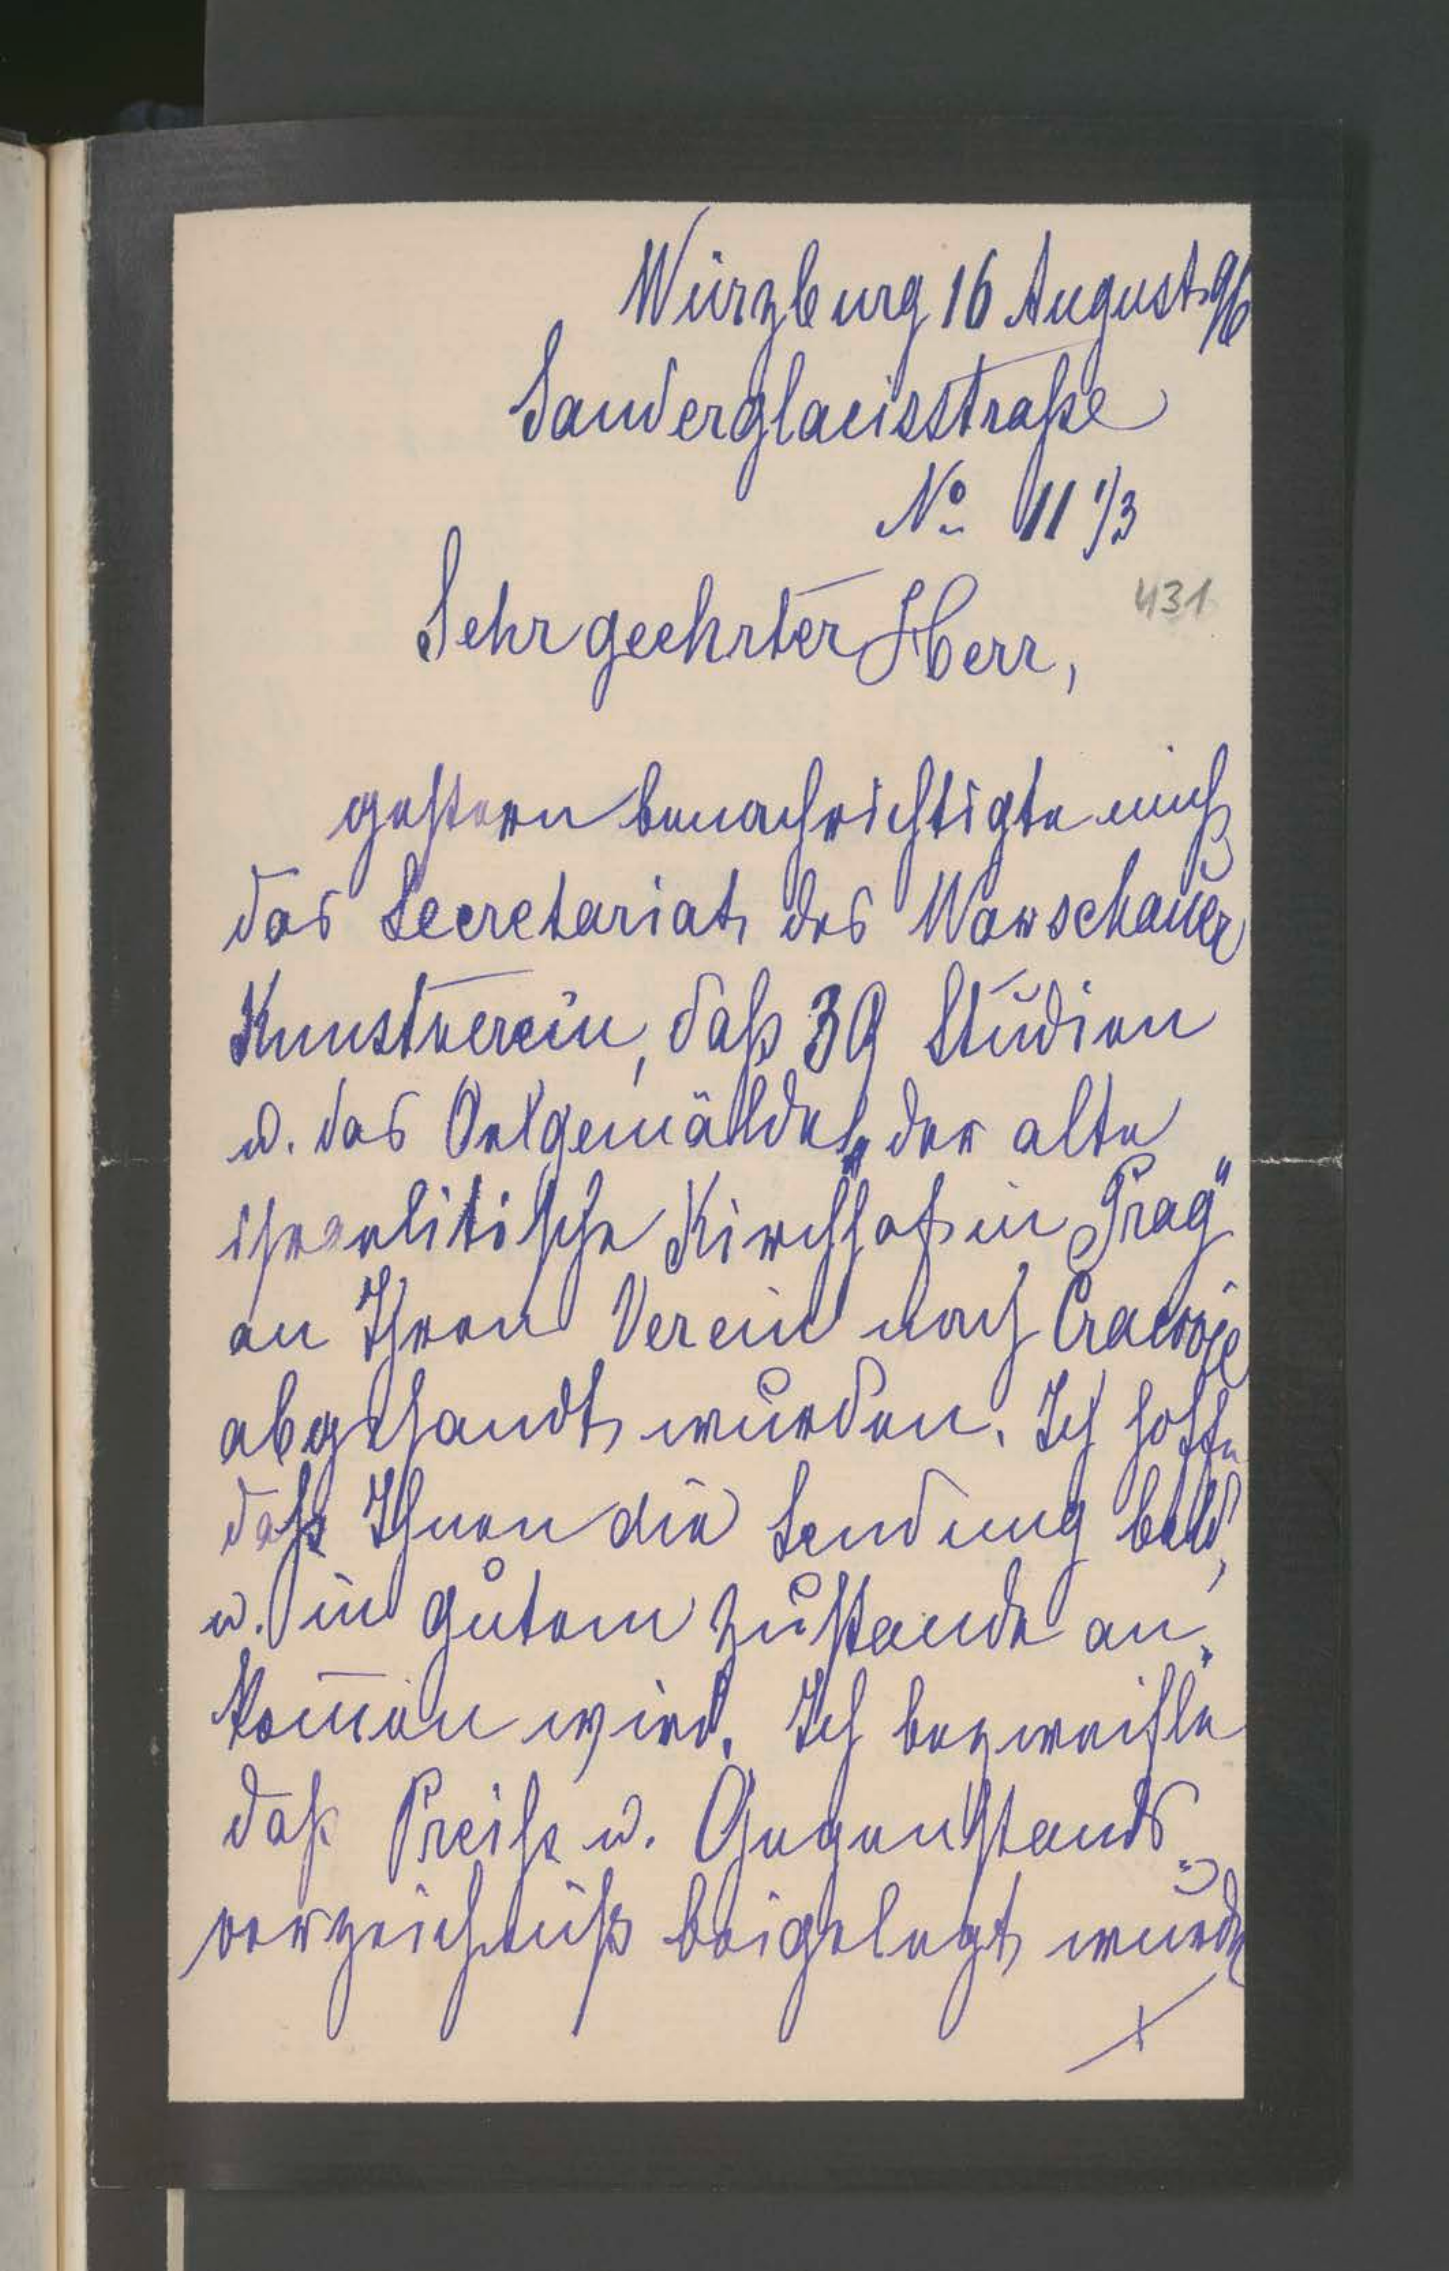 Würzburg 16 August 96
Sanderglacisstraße
No 11 1/3
431
Sehr geehrter Herr,
gestern benachrichtigte mich
das Secretariat des Warschauer
Kunstverein, daß 39 Studien
u. das Oelgemälde „der alte
israelitische Kirchhof in Prag"
an Ihren Verein nach Cracovie
abgesandt wurden. Ich hoffe
daß Ihnen die Sendung bald,
u. in gutem Zustande an-
kom̅en wird. Ich bezweifle
daß Preiß u. Gegenstands-
verzeichniß beigelegt wurde